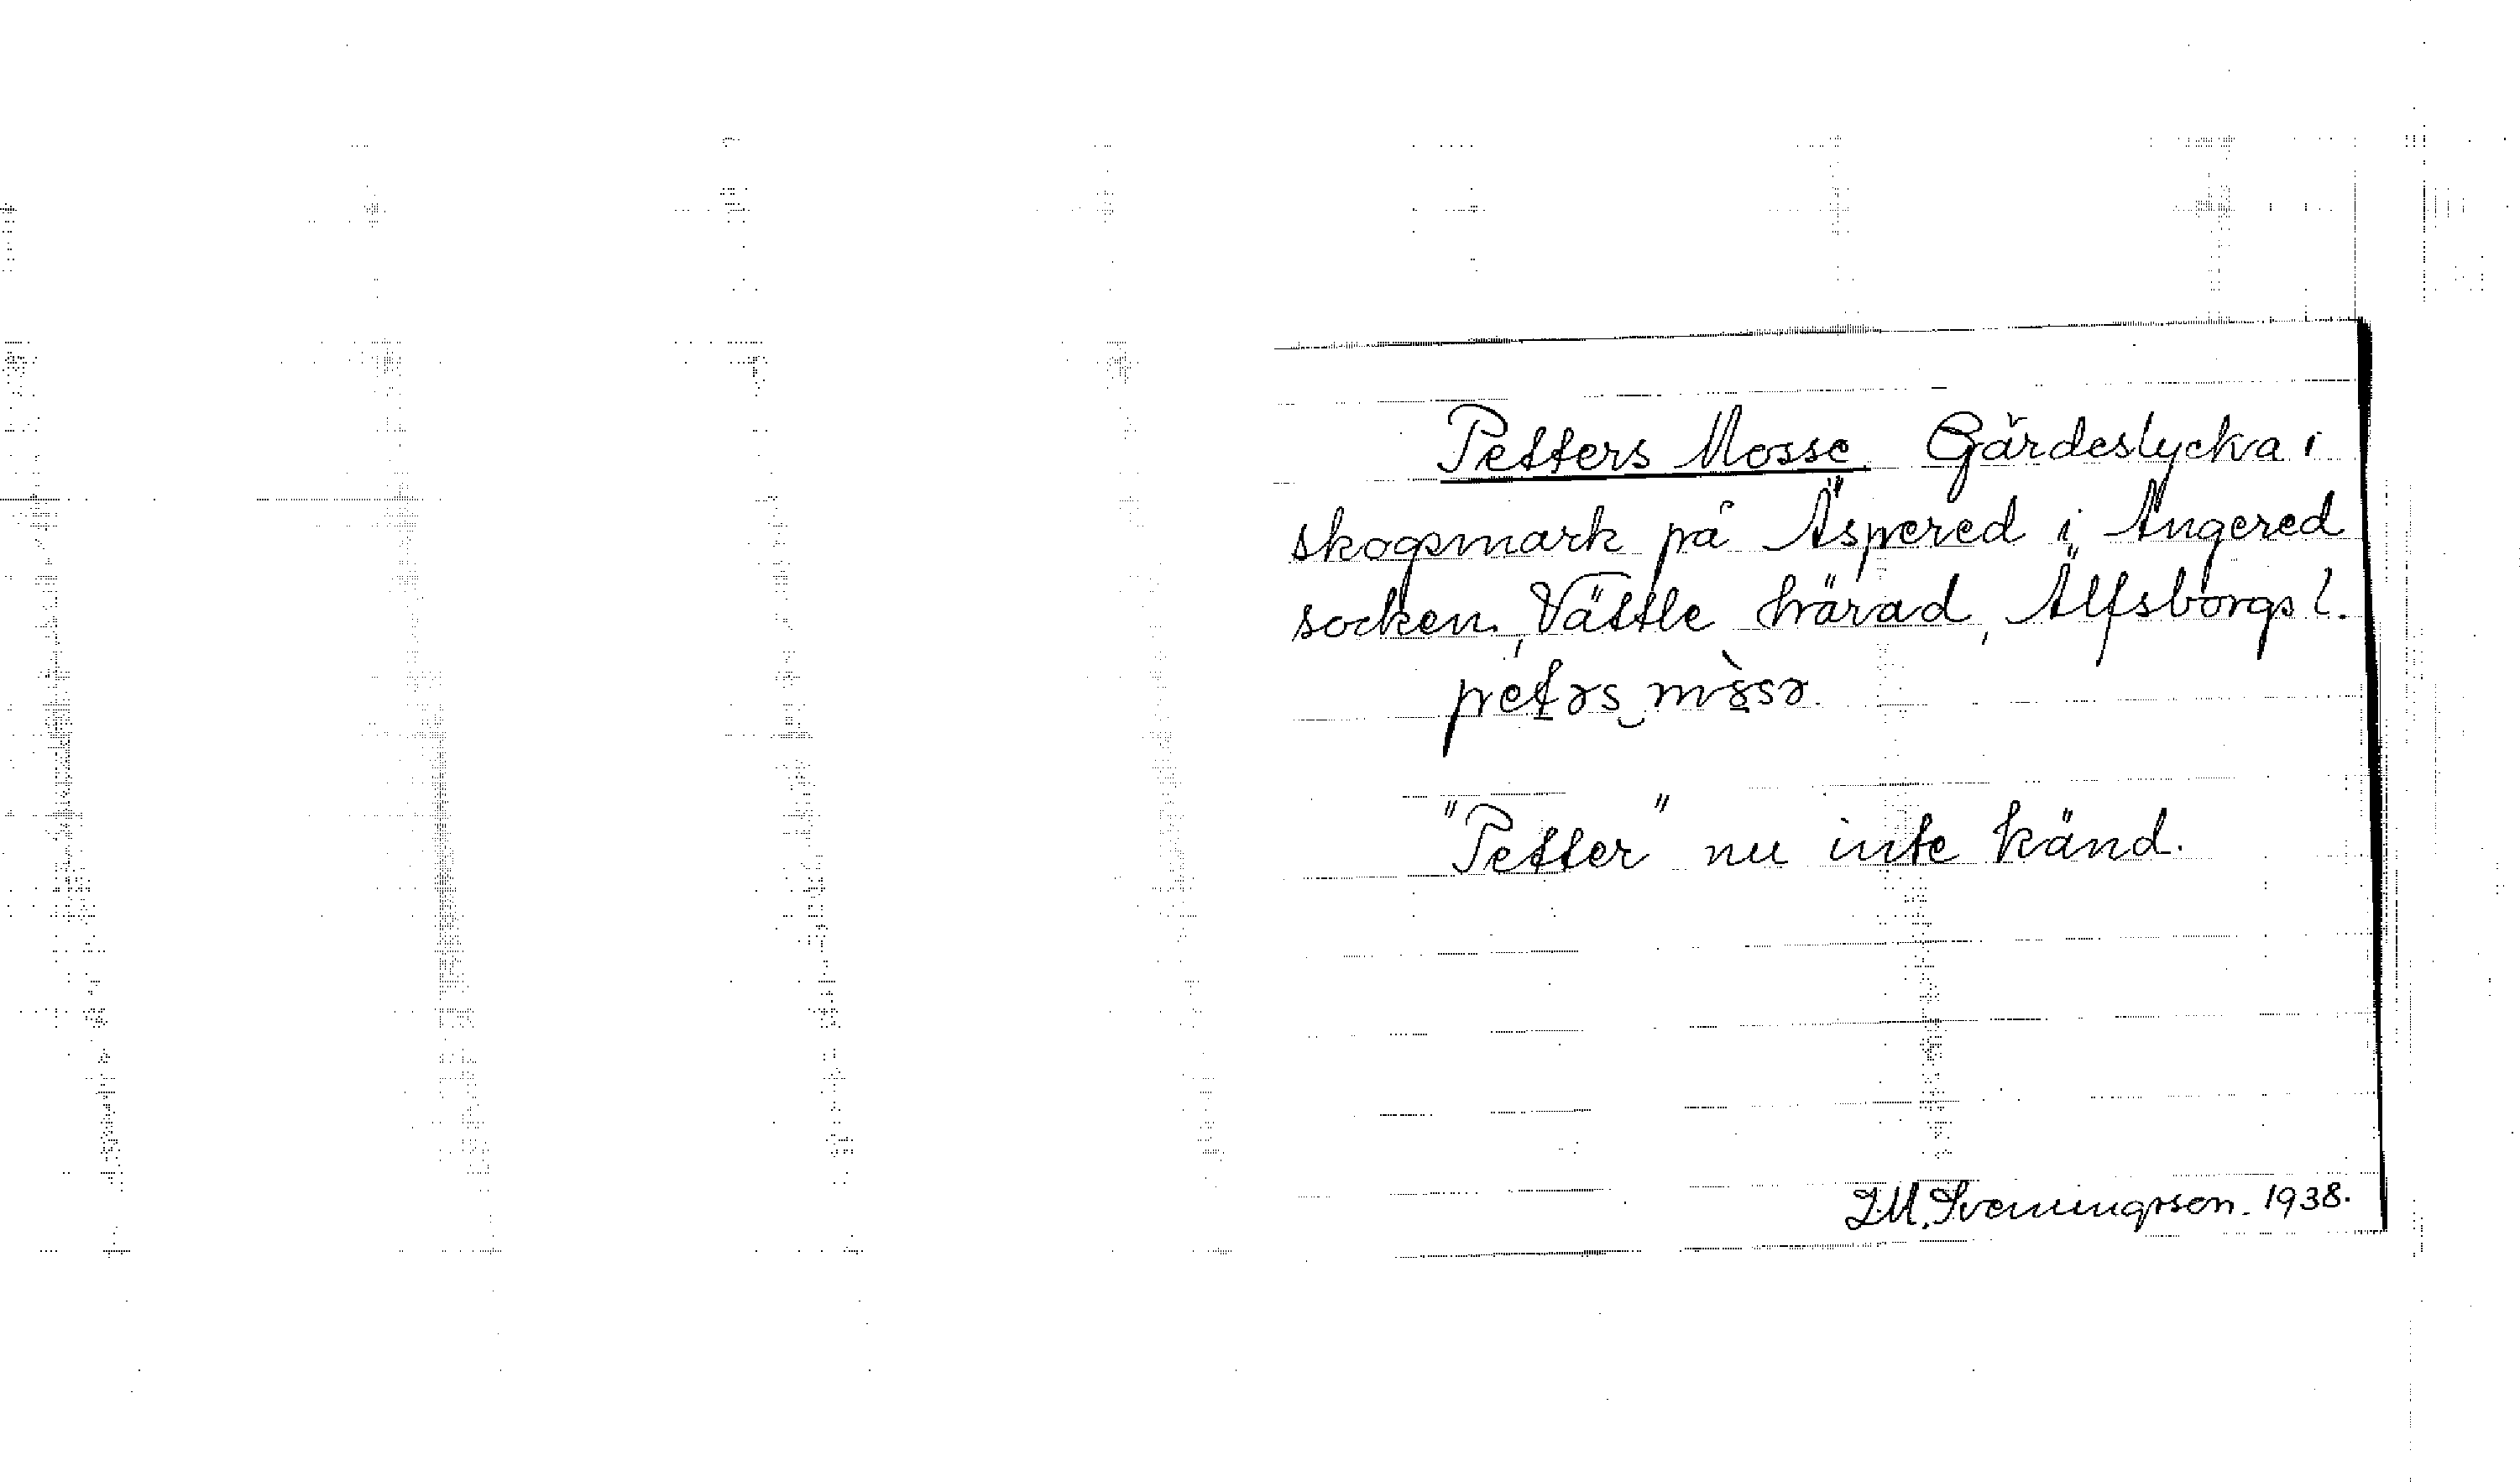 Petters Mosse Gärdeslycka i
skogsmark på Äspered i Angered
socken, Vättle härad, Älfsborgs l.
"Petter" nu inte känd.
J.M. Svenningsson. 1938.